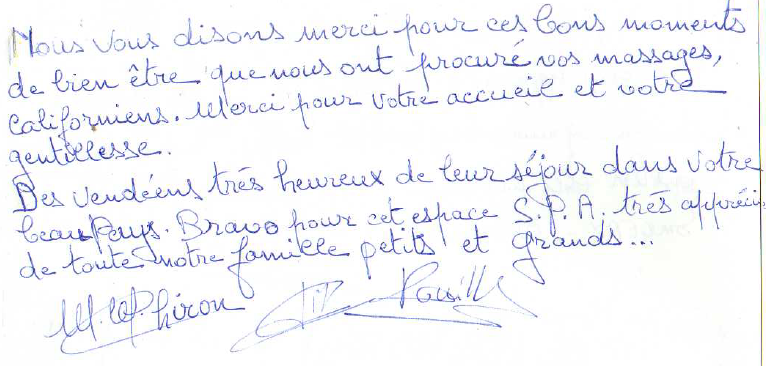 Nous vous disons merci pour ces bons moments
de bien être que nous ont procuré vos massages,
Californiens. Merci pour votre accueil et votre
gentillesse.
Des vendéens très heureux de leur séjour dans votre
beau Pays. Bravo pour cet espace S.P.A. très appréci
de toute notre famille petits et grands...